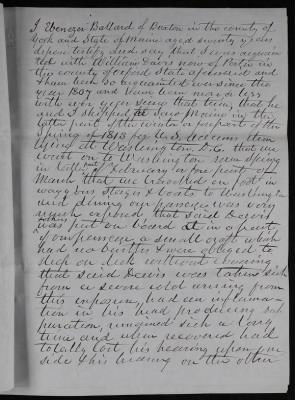 I Ebenezer Ballard of Buxton in the county of
York and State of Maine aged seventy years
depose testify and say that I was acquain
ted with William Davis now of Porter in
this county of oxford State aforesaid and
have been so acquainted ever since the
year 1807 and have been more or less
with ever year since that time, that he
and I shipped at Saco Maine in the
latter part of the winter or part of the
Spring of 1813 for U.S. Adams then
lying at Washington D.C. that we
went on to Washington some spring
in latter part of February or fore part of
March that we travelled on foot in
waggons stages & boats to Washington
and during our passage was very
much exposed that said Davis
was put on board at in a part
of our passage a small craft which
had no births & were obliged to
sleep on deck without changing
that said Davis was taken sick
from a severe cold arising from
this exposure, had an inflama-
tion in his head producing sup
puration, remained sick a long
time and when recovered had
totally lost his hearing upon one
side & his hearing on the other